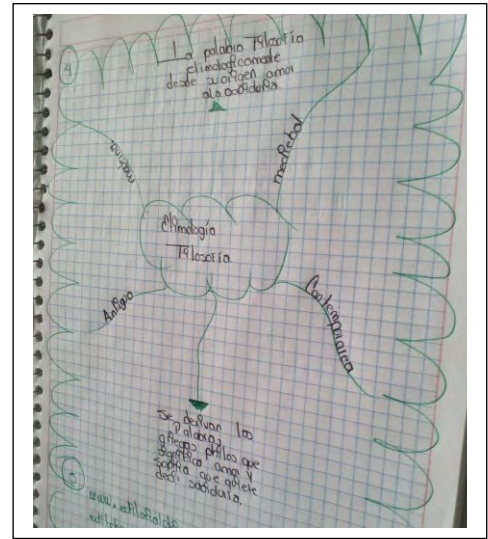 4
La palabra Filosofía
Etimologicamente
desde su origen amor
a la sabiduria.
moderna
mediebal
Etimología
Filosofía
Antiguo
Contemporanea
Se derivan las
palabras
griegas philos que
significa amor y
sophia que quiere
decir sabiduria.
www.